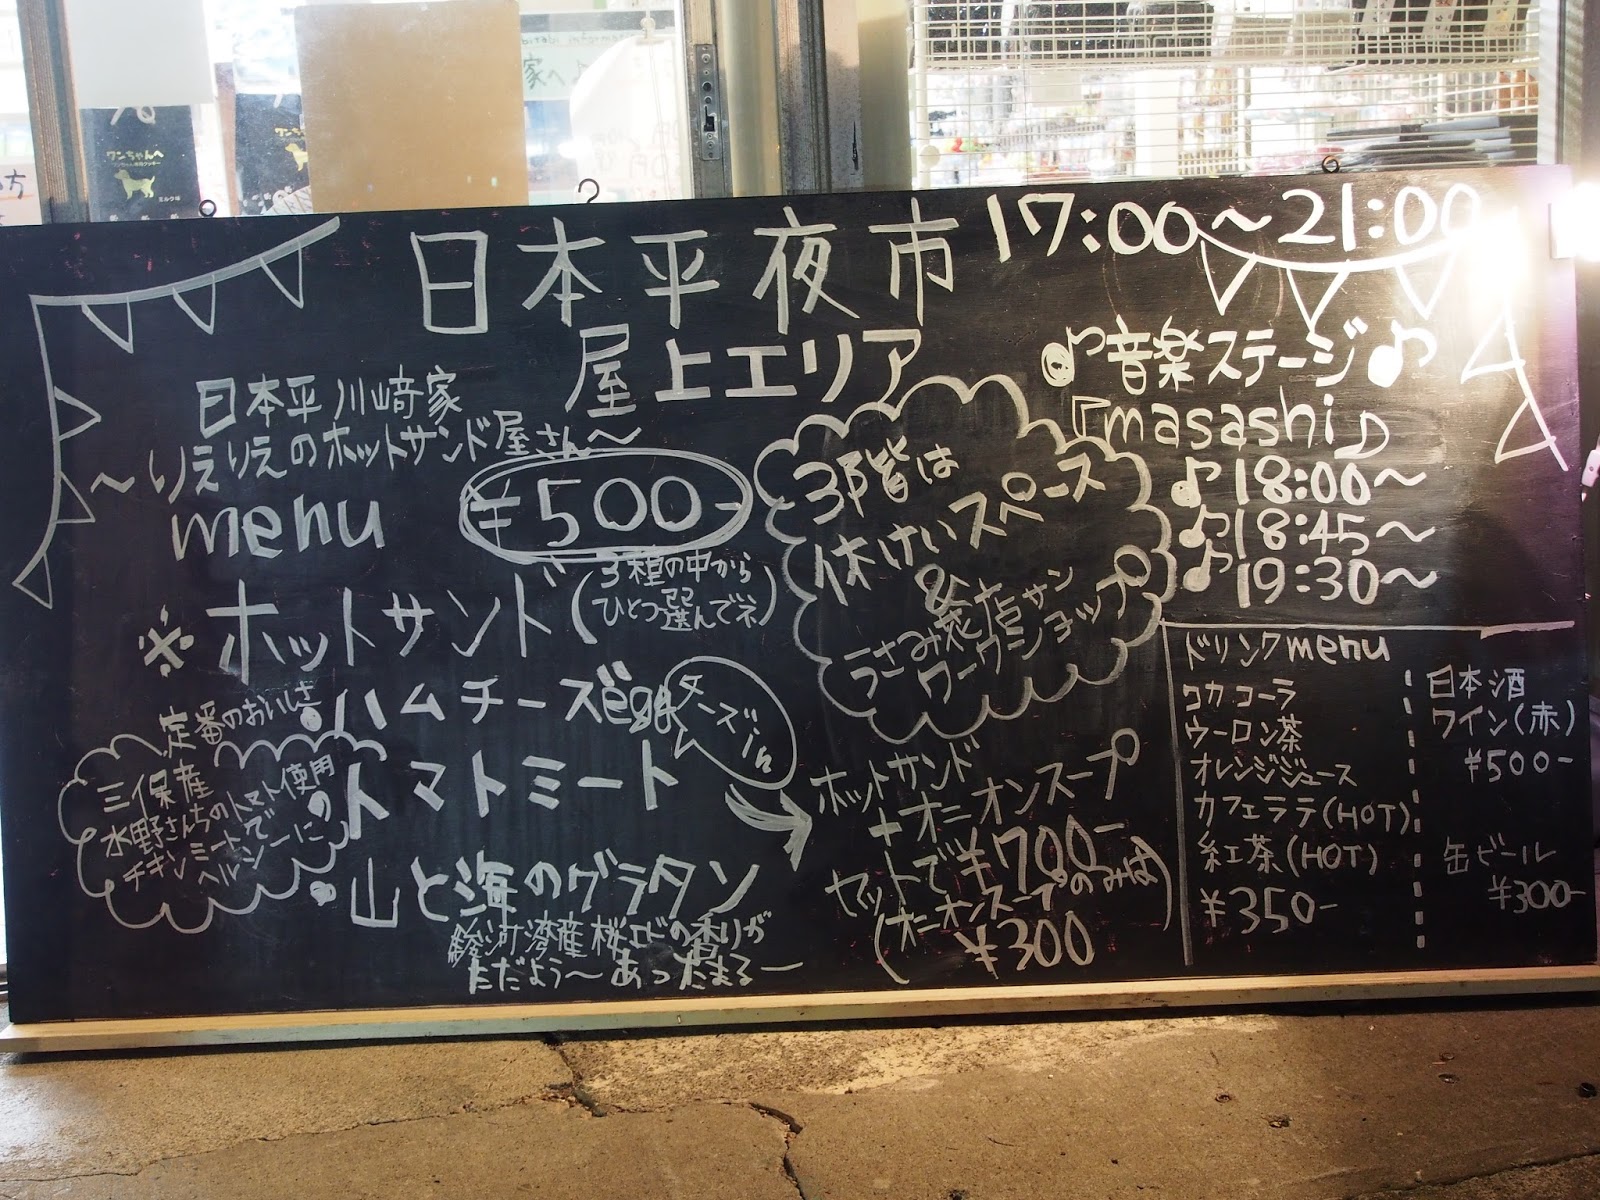 ワンちゃんへ
日本平夜市 17:00〜21:00
屋上エリア
日本平 川崎家
〜りえりえのホットサンド屋さん〜
menu
¥500-
※ホットサンド
(3種の中から
ひとつ選んでネ)
定番のおいしさ
・ハムチーズegg
チーズin
・トマトミート
三保産
水野さんちのトマト使用の
チキンミートで
ヘルシーに
・山と海のグラタン
駿河湾産桜エビの香りが
ただよう〜あったまるー
3階は
休けいスペース
&
うさみ券店サン
ワークショップ
ホットサンド
+オニオンスープ
セットで¥700-
(オニオンスープのみは)
¥300
♪音楽ステージ♪
『masashi♪』
♪18:00〜
♪18:45〜
♪19:30〜
ドリンクmenu
コカコーラ
ウーロン茶
オレンジジュース
カフェラテ(HOT)
紅茶(HOT)
¥350-
日本酒
ワイン(赤)
¥500-
缶ビール
¥300-